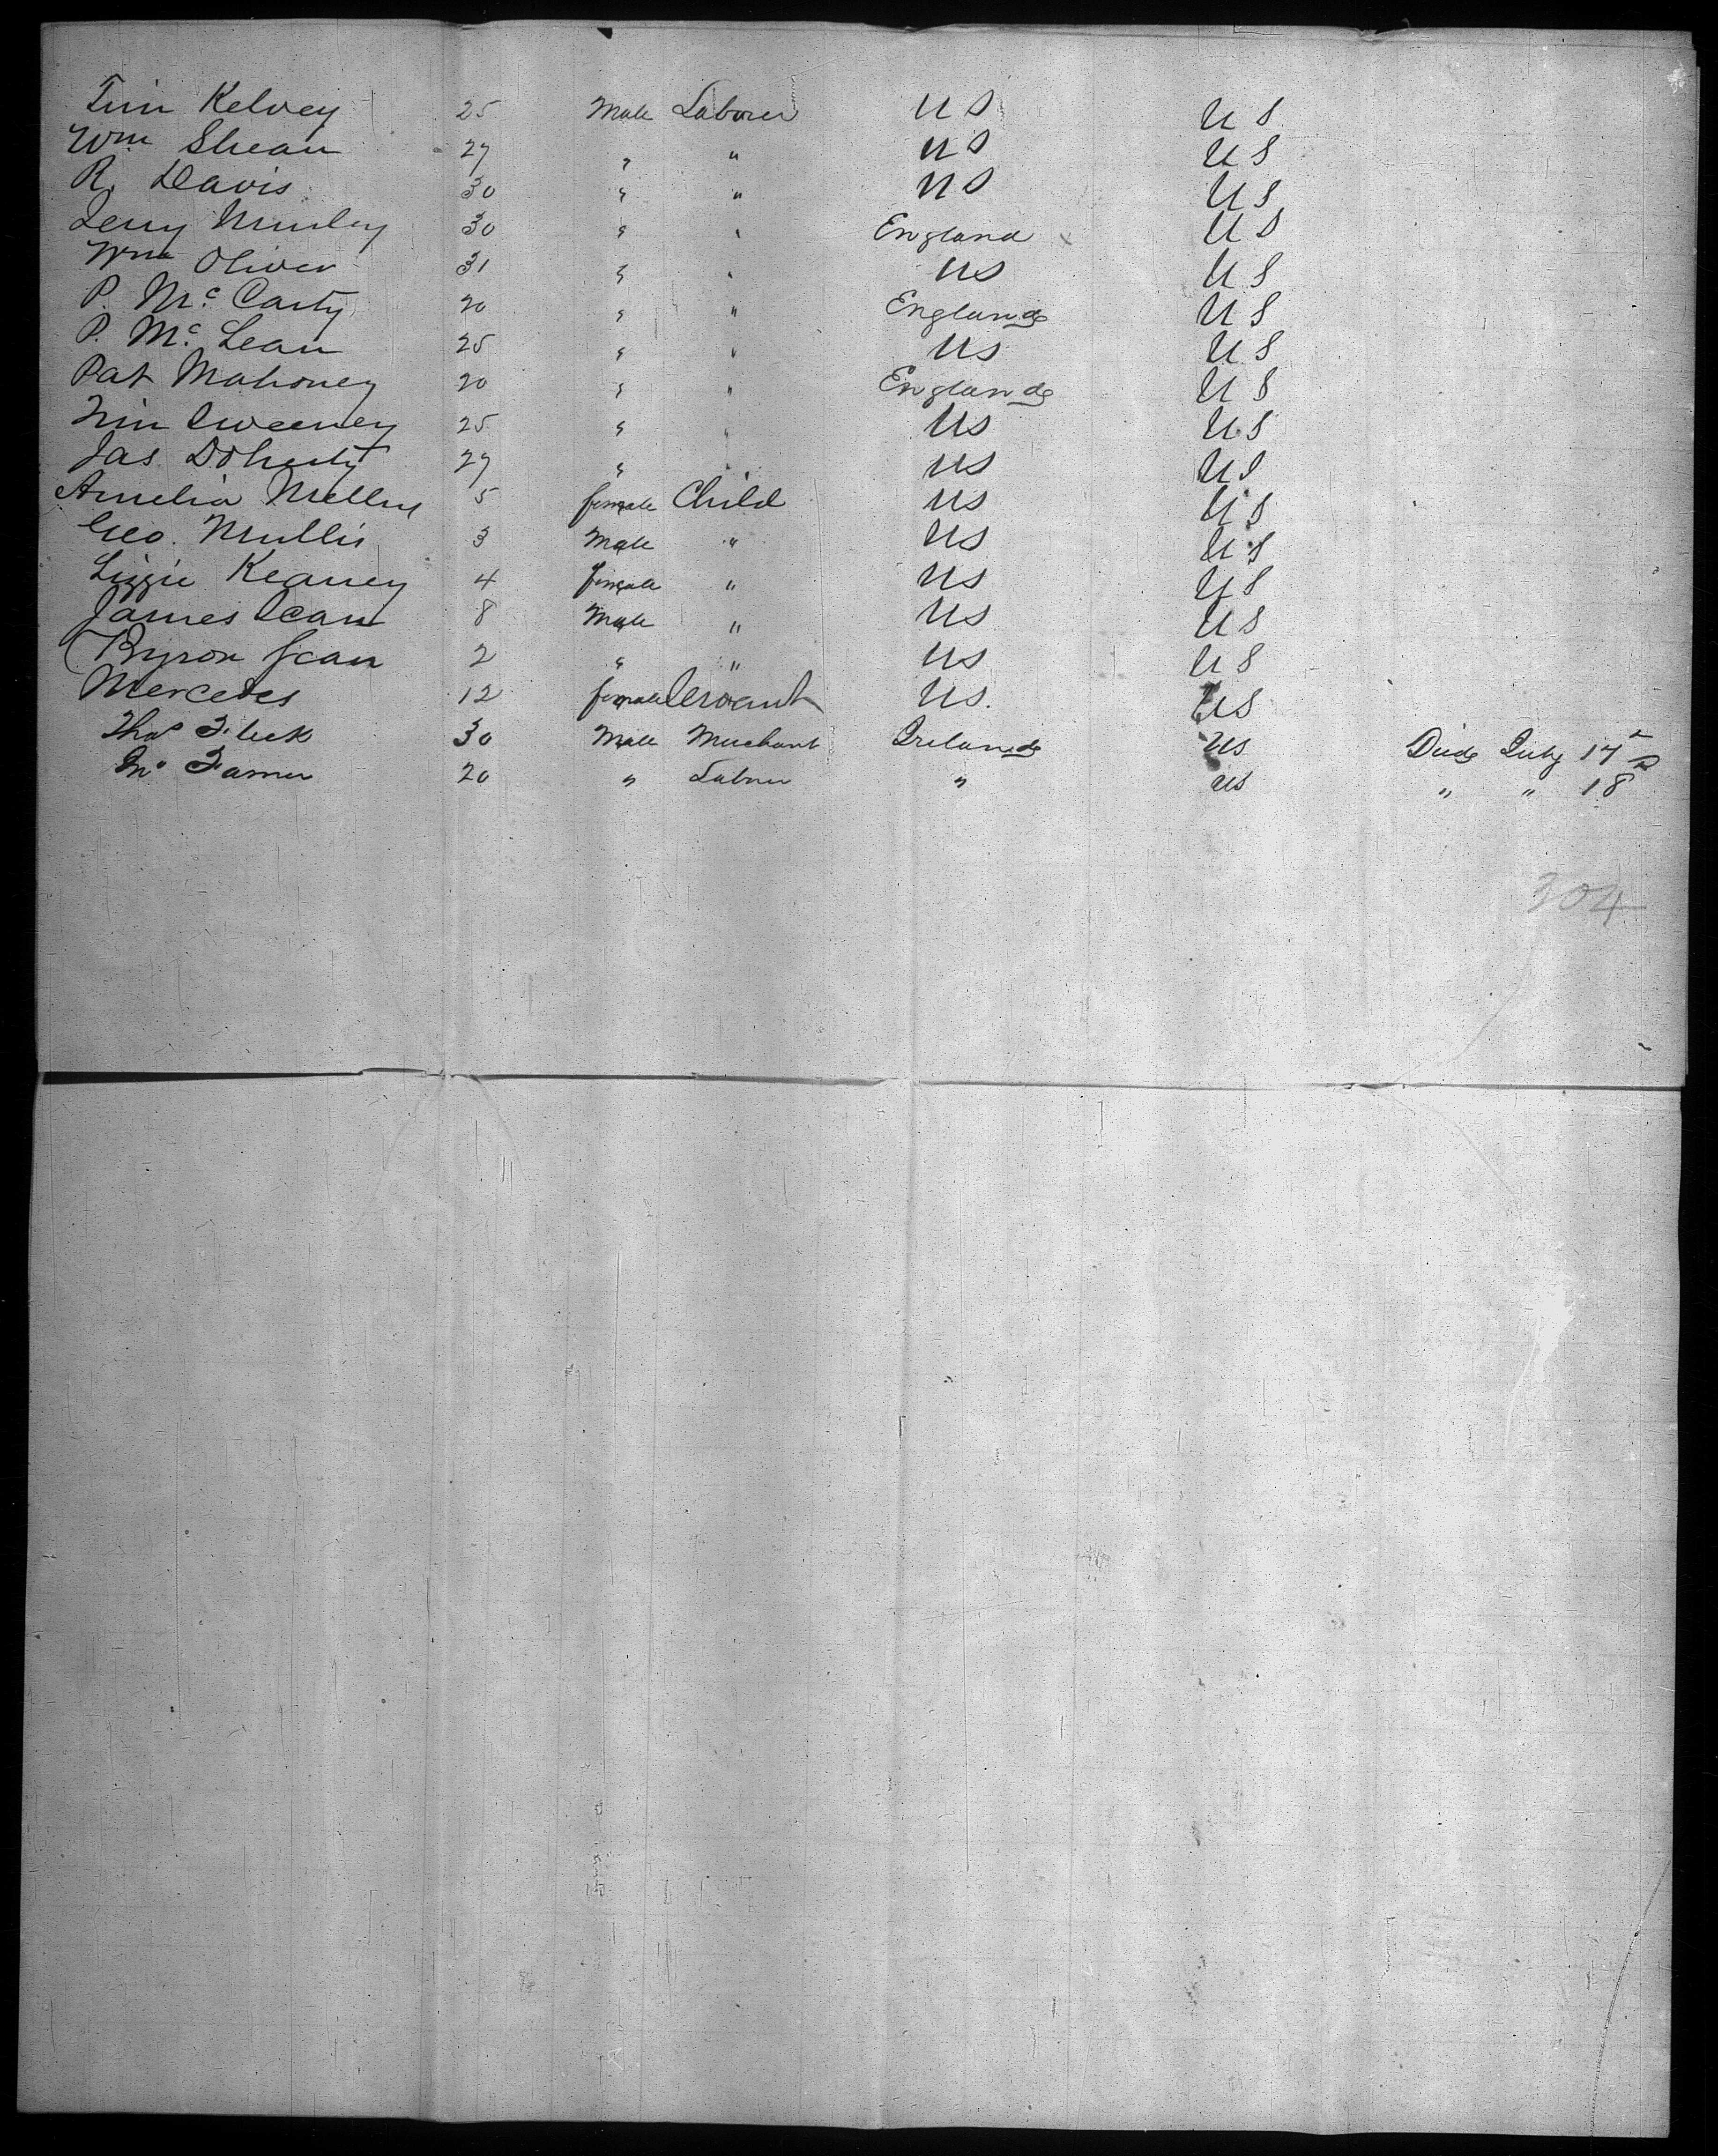 Tim Kelvey 25 Male Laborer US US
Wm Shean 27 " " US US
R. Davis 30 " " US US
Jerry 30 " " England US
Wm Oliver 31 " " US US
P. McCarty 20 " " England US
P. McLean 25 " " US US
Pat Mahoney 20 " " England US
Tim Sweeney 25 " " US US
Jas Doherty 27 " " US US
Amelia 5 female Child US US
Geo. Mullis 3 Male " US US
Lizzie Keaney 4 female " US US
James Jean 8 Male " US US
Byron Jean 2 " " US US
Mercedes 12 female Servant US. US
Thos Fleck 30 Male Merchant Ireland US Died July 17
20 " Laborer " US " " 18
304